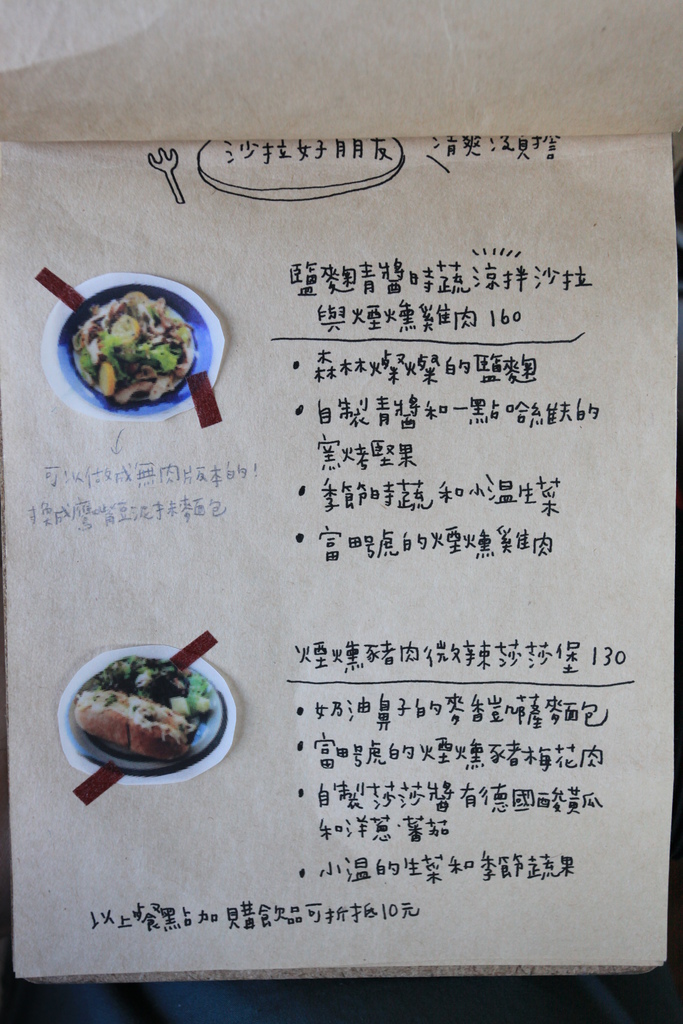 沙拉好朋友 清爽沒負擔
鹽麴青醬時蔬涼拌沙拉
與煙燻雞肉 160
• 森林燦燦的鹽麴
• 自製青醬和一點哈維夫的
窯烤堅果
• 季節時蔬和小溫生菜
• 富田號虎的煙燻雞肉
可以做成無肉版本的!
換成鷹嘴豆泥抹麵包
煙燻豬肉微辣莎莎堡 130
• 奶油鼻子的麥香凱薩麵包
• 富田號虎的煙燻豬梅花肉
• 自製莎莎醬有德國酸黃瓜
和洋蔥、蕃茄
• 小溫的生菜和季節蔬果
以上餐點加購飲品可折抵10元